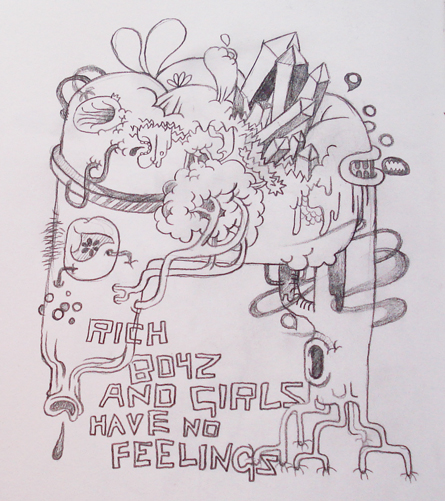 RICH
BOYZ
AND GIRLS
HAVE NO
FEELINGS